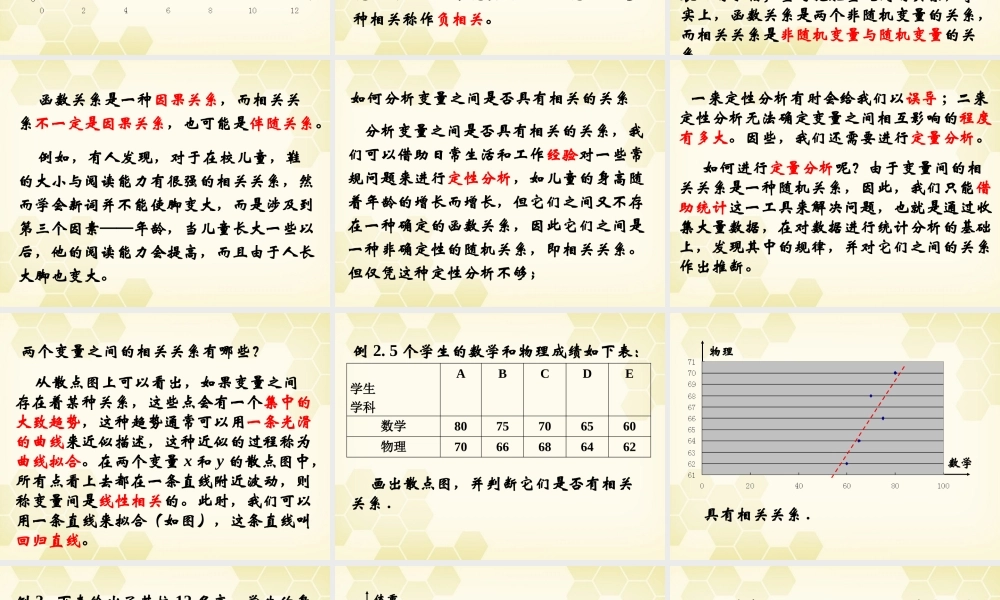 0 2 4 6 8 10 12
种相关称作负相关。
实上，函数关系是两个非随机变量的关系，
而相关关系是非随机变量与随机变量的关
函数关系是一种因果关系，而相关关
系不一定是因果关系，也可能是伴随关系。
例如，有人发现，对于在校儿童，鞋
的大小与阅读能力有很强的相关关系，然
而学会新词并不能使脚变大，而是涉及到
第三个因素——年龄，当儿童长大一些以
后，他的阅读能力会提高，而且由于人长
大脚也变大。
如何分析变量之间是否具有相关的关系
分析变量之间是否具有相关的关系，我
们可以借助日常生活和工作经验对一些常
规问题来进行定性分析，如儿童的身高随
着年龄的增长而增长，但它们之间又不存
在一种确定的函数关系，因此它们之间是
一种非确定性的随机关系，即相关关系。
但仅凭这种定性分析不够；
一来定性分析有时会给我们以误导；二来
定性分析无法确定变量之间相互影响的程度
有多大。因些，我们还需要进行定量分析。
如何进行定量分析呢？由于变量间的相
关关系是一种随机关系，因此，我们只能借
助统计这一工具来解决问题，也就是通过收
集大量数据，在对数据进行统计分析的基础
上，发现其中的规律，并对它们之间的关系
作出推断。
两个变量之间的相关关系有哪些？
从散点图上可以看出，如果变量之间
存在着某种关系，这些点会有一个集中的
大致趋势，这种趋势通常可以用一条光滑
的曲线来近似描述，这种近似的过程称为
曲线拟合。在两个变量 x 和 y 的散点图中，
所有点看上去都在一条直线附近波动，则
称变量间是线性相关的。此时，我们可以
用一条直线来拟合（如图），这条直线叫
回归直线。
例 2. 5 个学生的数学和物理成绩如下表：
A B C D E
学生
学科
数学 80 75 70 65 60
物理 70 66 68 64 62
画出散点图，并判断它们是否有相关
关系．
物理
71
70
69
68
67
66
65
64
63
62
61
数学
0 20 40 60 80 100
具有相关关系．